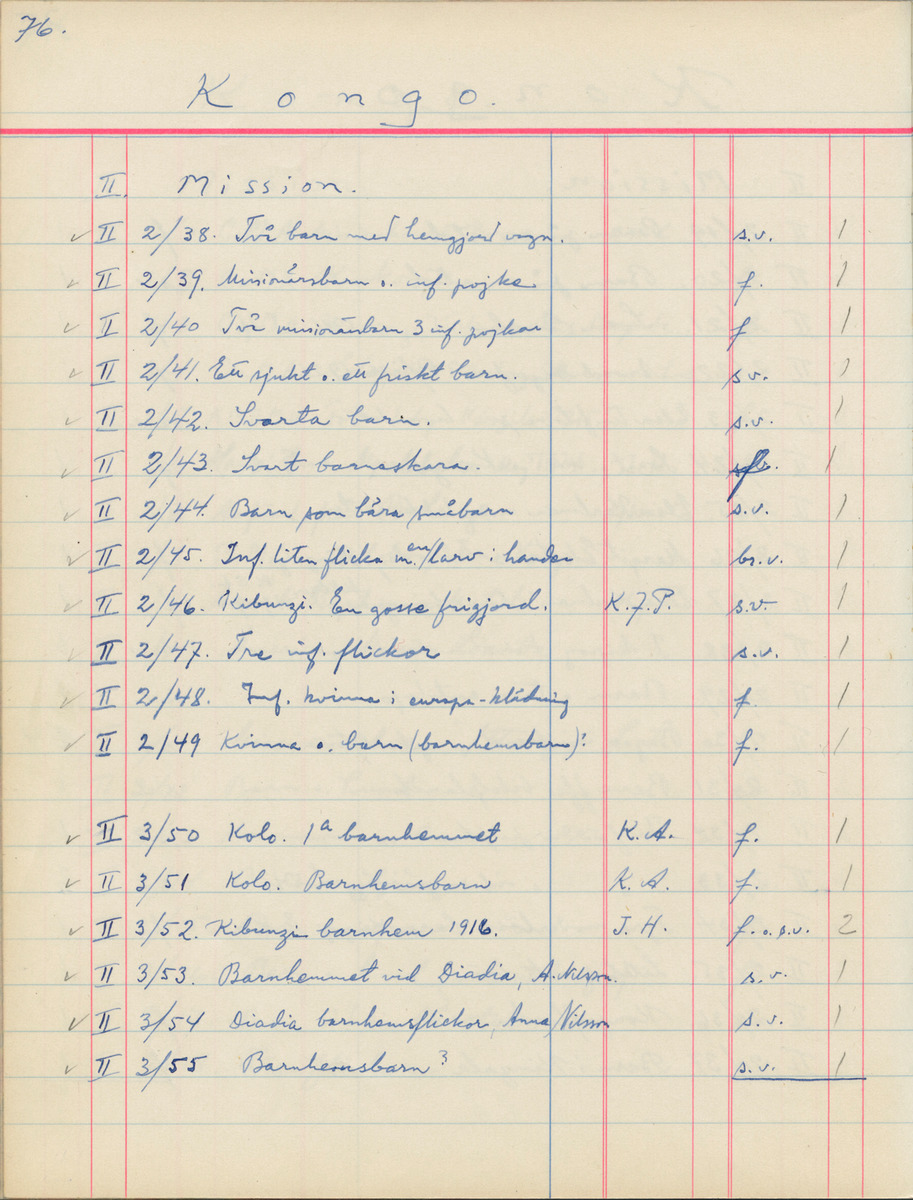 76.
Kongo.
II. Mission.
✓ II 2/38. Två barn med hemgjord vagn. s.v. 1
✓ II 2/39. Missionärsbarn o. inf. pojke f. 1
✓ II 2/40 Två missionärsbarn 3 inf. pojkar f 1
✓ II 2/41. Ett sjukt o. ett friskt barn. s v. 1
✓ II 2/42. Svarta barn. s.v. 1
✓ II 2/43. Svart barnaskara. 1
✓ II 2/44. Barn som bära småbarn s.v. 1
✓ II 2/45. Inf. liten flicka m. en larv i handen br.v. 1
✓ II 2/46. Kibunzi. En gosse frigjord. K.J.P. s.v. 1
✓ II 2/47. Tre inf. flickor s.v. 1
✓ II 2/48. Inf. kvinna i europa-klädning f. 1
✓ II 2/49 Kvinna o. barn (barnhemsbarn)? f. 1
✓ II 3/50 Kolo. 1a barnhemmet K.A. f. 1
✓ II 3/51 Kolo. Barnhemsbarn K.A. f. 1
✓ II 3/52. Kibunzi barnhem 1916. J.H. f. o. s.v. 2
✓ II 3/53. Barnhemmet vid Diadia, A. Nilsson. s.v. 1
✓ II 3/54 Diadia barnhemsflickor, Anna Nilsson s.v. 1
✓ II 3/55 Barnhemsbarn? s.v. 1